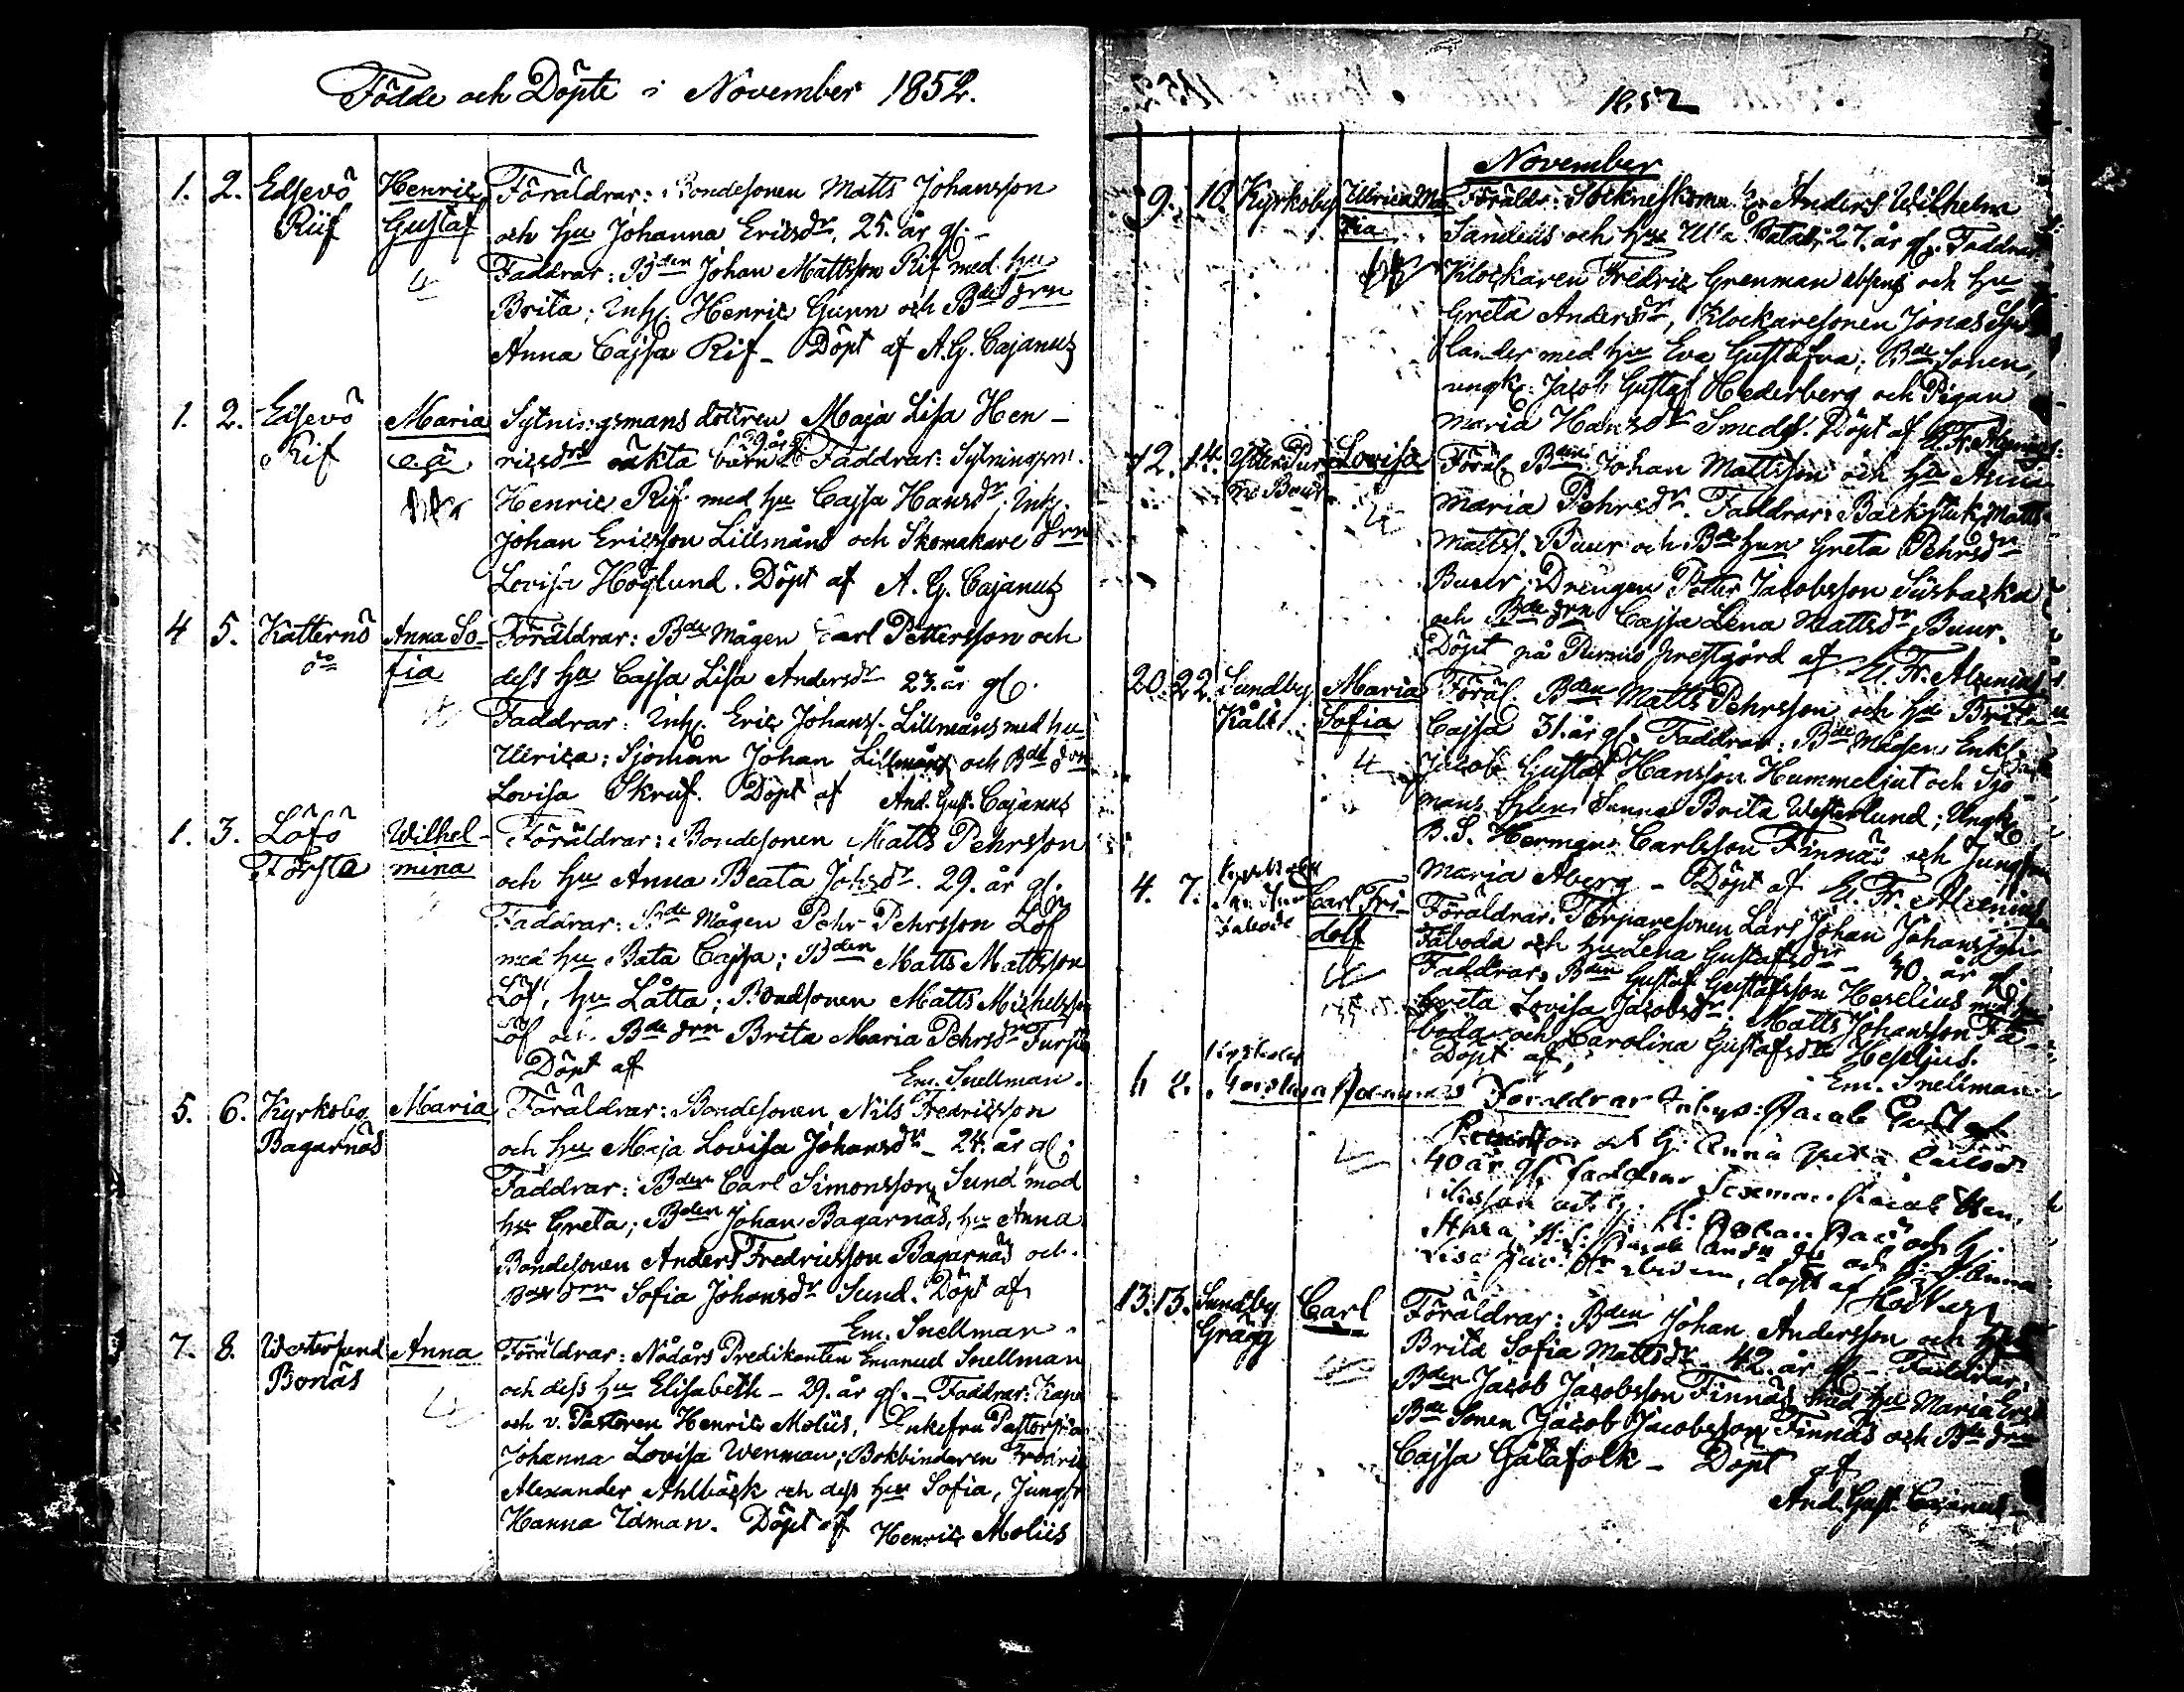 Födde och Döpte i November 1852.
1. 2. Edsevö Henric Föräldrar: Bondesonen Matts Johansson
Riif Gustaf och hu Johanna Ericsdr, 25. år gl. -
Faddrar: Bden Johan Mattsson Rif med hu
Brita; Inh. Henric Gunn och Bde drn
Anna Cajsa Rif - Döpt af A. G. Cajanus
1. 2. Edsevö Maria Sytningsmans dottren Maja Lisa Hen-
Rif o. ä. ricsdrs oäkta barn Faddrar: Sytningsm.
Henric Rif med hu Cajsa Hansdr; Inh.
Johan Ericsson Lillmåns och Skomakare drn
Lovisa Höglund. Döpt af A. G. Cajanus
4 5. Katternö Anna So- Föräldrar: Bde Mågen Carl Pettersson och
fia dess hu Cajsa Lisa Andersdr 23. år gl.
Faddrar: Inh. Eric Johans. Lillmåns med hu
Ulrica; Sjöman Johan Lillmåns och Bde drn
Lovisa Skruf. Döpt af And. Gust. Cajanus
1. 3. Löfö Wilhel- Föräldrar: Bondesonen Matts Pehrsson
Första mina och hu Anna Beata Johsdr. 29. år gl.
Faddrar: Bde Mågen Pehr Pehrsson Löf
med hu Bata Cajsa; Bden Matts Mattsson
Löf, hu Låtta; Bondsonen Matts Michelsson
Löf och Bde drn Brita Maria Pehrsdr
Döpt af
Em. Snellman.
5. 6. Kyrkoby Maria Föräldrar: Bondesonen Nils Fredricsson
Bagarnäs och hu Maja Lovisa Johansdr - 24. år gl;
Faddrar: Bden Carl Simonsson Sund med
hu Greta; Bden Johan Bagarnäs, hu Anna
Bondesonen Anders Fredricsson Bagarnäs och
drn Sofia Johansdr Sund. Döpt af
Em. Snellman.
7. 8. Westersund Anna Föräldrar: Nådårs Predikanten Emanuel Snellman
Bonäs och dess hu Elisabeth - 29. år gl. - Faddrar: Kapl
och v. Pastoren Henric Moliis, Enkefru Pastorskan
Johanna Lovisa Wenman; Bokbinderen Fredric
Alexander Ahlbäck och dess hu Sofia, Jungfr
Hanna Idman. Döpt af Henric Moliis
1852
November
9. 10. Kyrkoby Ulrica Ma Föräldr: Anders Wilhelm
ria Sandelis och hu Ulla 27. år gl. Faddrar
Klockaren Fredric Grenman absens och hu
Greta Andersdr, Klockaresonen Jonas
lander med hu Eva Gustafva; Bde Sonen,
ungk. Jacob Gustaf Hederberg och Pigan
Maria Hansdr Smeds. Döpt af
12. 14. Ytter Lovisa Föräl. Bden Johan Mattsson och hu Anna
Maria Pehrsdr. Faddrar: Backstuk. Matts
Matts. Buur och Bde hun Greta Pehrsdr
Buur; Drengen Petter Jacobsson Süsbacka
och Bde drn Cajsa Lena Mattsdr Buur.
Döpt på prestgård af
20. 22. Sundby Maria Föräl. Bden Matts Pehrsson och hu Brita
Kåll Sofia Cajsa 31. år gl. Faddrar: Bde Mågen Enkl.
Jacob Gustaf Hansson Hummeljut och Sjö-
mans Sanna Brita Westerlund; Ungk.
B. S. Herman Carlsson Finnäs och Jungfru
Maria Åberg - Döpt af
4. 7. Carl Fri- Föräldrar: Torparesonen Lars Johan Johansson
dolf Fäboda och hu Lena Gustafsdr - 30. år gl.
Faddrar: Bden Gustaf Gustafsson Heselius med hu
Greta Lovisa Jacobsdr. Matts Johansson Fä-
boda och Carolina Gustafsdr Heselius.
Döpt af,
Em. Snellman
Föräldrar Jacob Gustaf
och h. Anna Greta
40 år gl. faddrar Jacob Hen
ricsson och h.
Johan och h.
döpt af
13. 13. Sundby Carl Föräldrar: Bden Johan Andersson och hu
Gragg Brita Sofia Mattsdr - 42. år gl - Faddrar:
Bden Jacob Jacobsson Finnäs med hu Maria
Bde Sonen Jacob Jacobsson Finnäs och Bde drn
Cajsa Gåtafolk - Döpt af
And. Gust. Cajanus